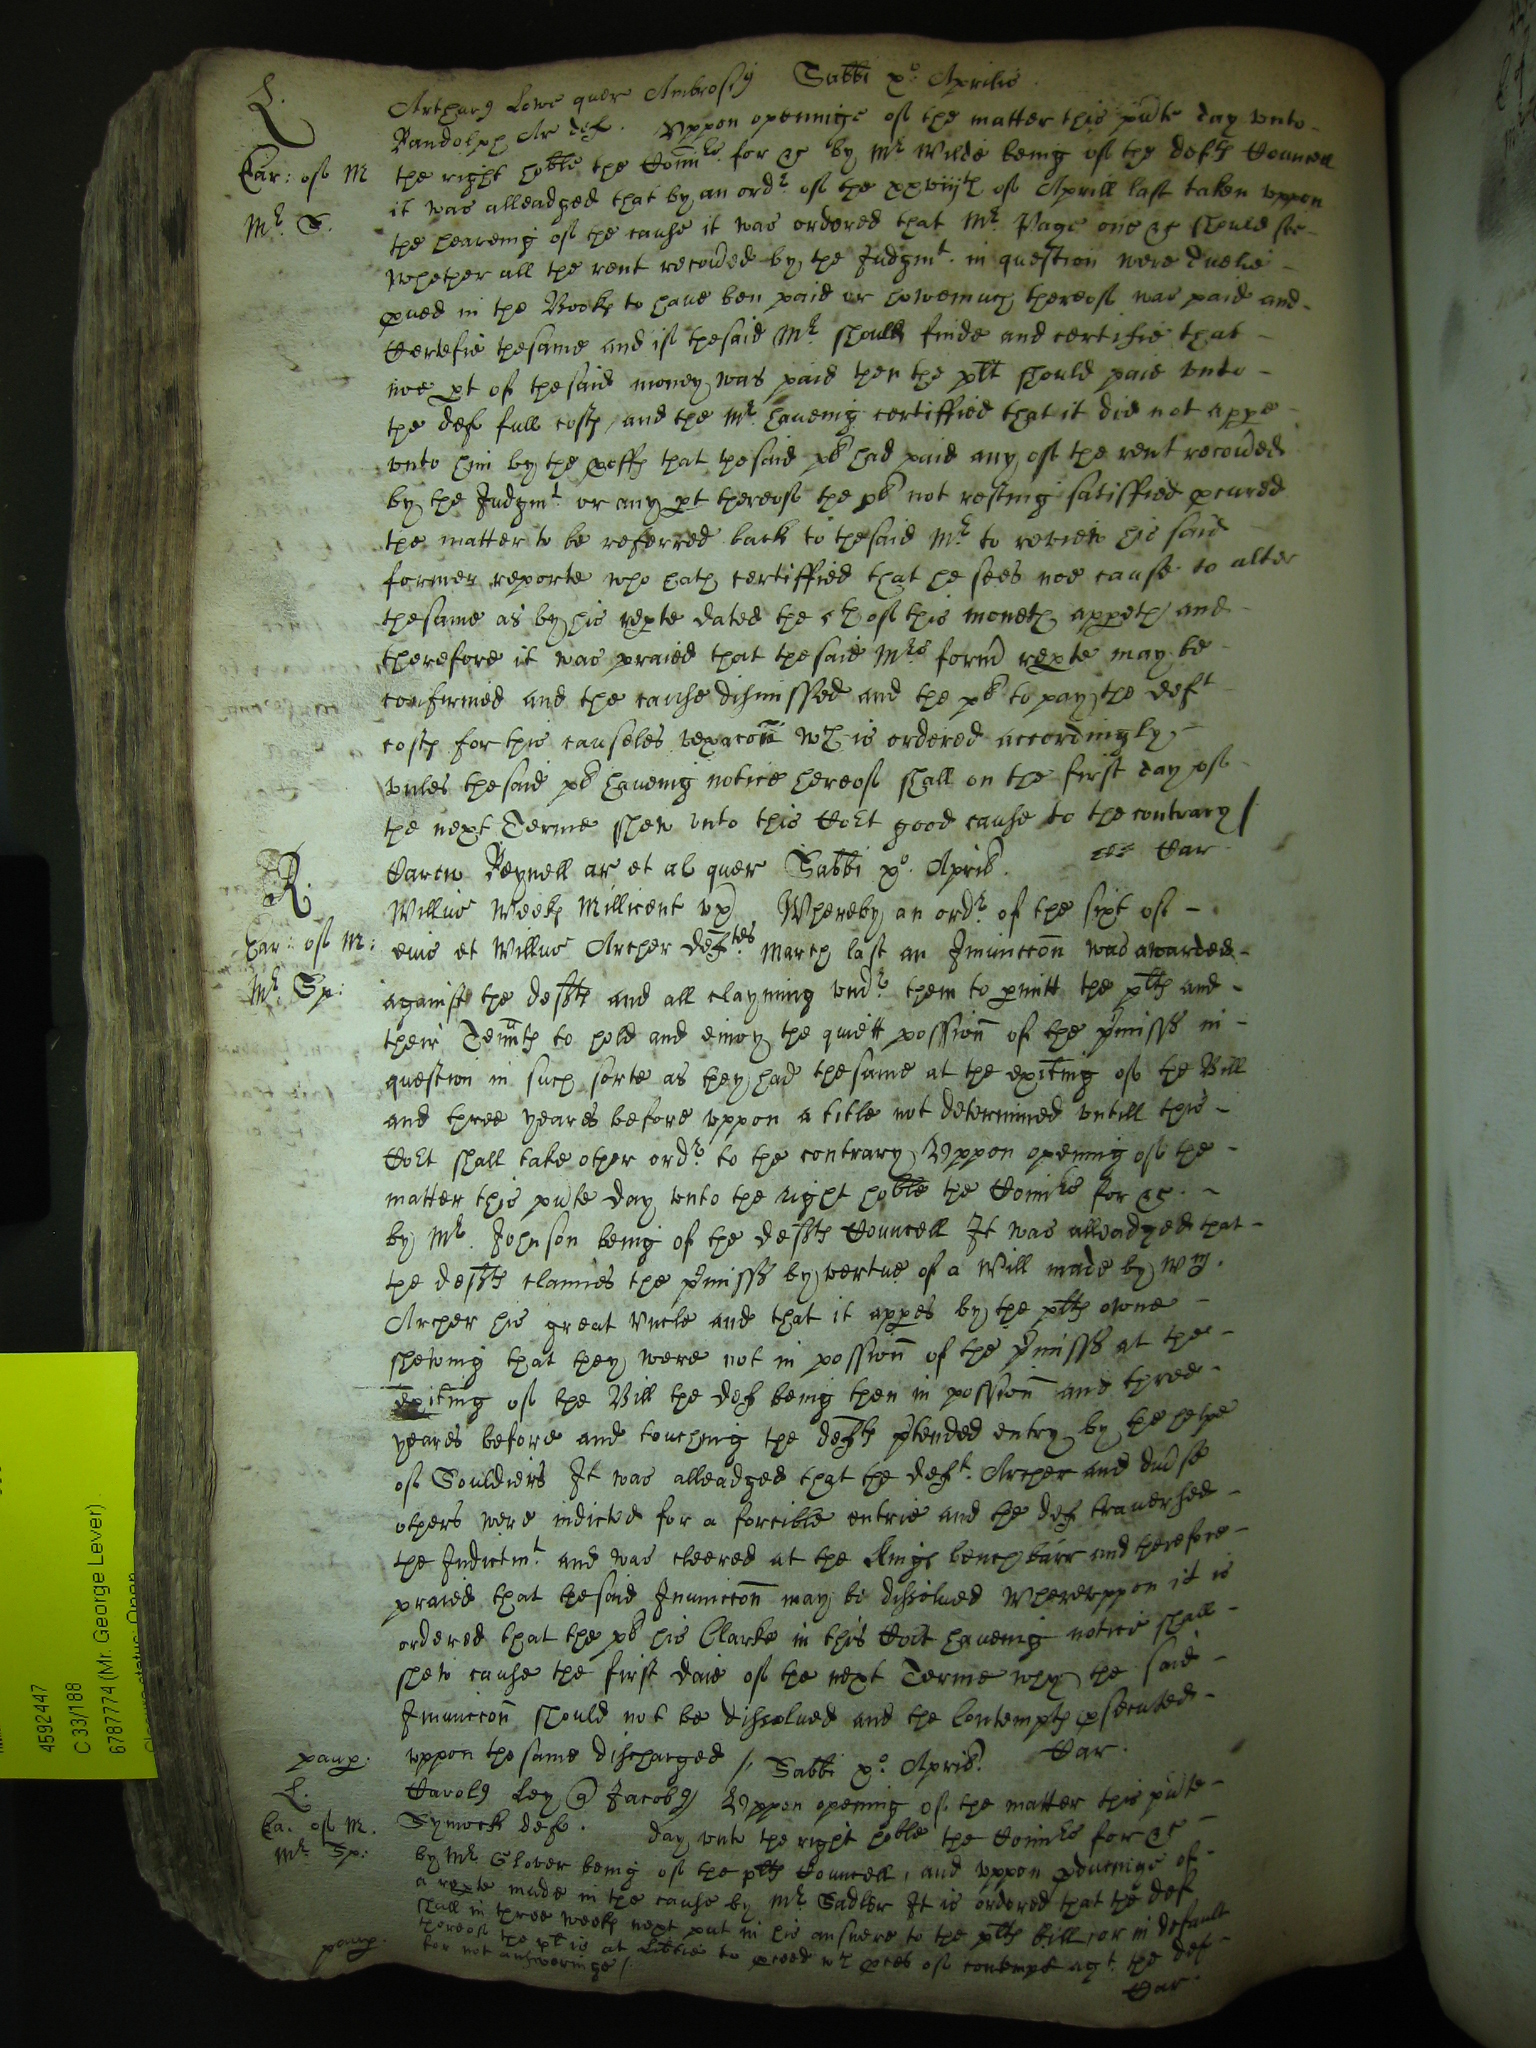 L. Arthur9 Lowe quer Ambrosi9 Sabbti xo. Aprilis
Randolph Ar def. Vppon openinge of the matter this pñte day vnto
Ear: of M the right hoble the Comrs for &c by Mr Wilde being of the defts Councell
it was alleadged that by an ordr of the xxviijth of Aprill last taken vppon
Mr. S. the heareing of the cause it was ordered that Mr Page one &c should see
whether all the rent recoued by the Judgmt. in question were duelie
pued in the Books to haue ben paid or howemuch thereof was paid and
Certefie thesame and if thesaid Mr should finde and certifie that
noe pt of thesaid money was paid then the plt should paie vnto
the def full costs, and the Mr haueing certiffied that it did not appe
vnto him by the proffs that thesaid pl had paid any of the rent recoued
by the Judgmt or any pt thereof the pl not resting satisffied pcured
the matter to be referred back to thesaid Mr to review his said
former reporte who hath certiffied that he sees noe cause to alter
thesame as by his repte dated the th of this moneth appeth and
therefore it was praied that thesaid Mrs form repte may be
confirmed and the cause dismissed and the pl to pay the deft
costs for this causeles vexacon wch is ordered accordingly
vnles thesaid pl haueing notice hereof shall on the first day of
the next Terme shew vnto this Cort good cause to the contrary /
Carew Reynell ar et al quer Sabbti xo. Aprils. Car
R. Willus Weeks Millicent vx Whereby an ordr of the sixt of
Ear: of M: eius et Willus Archer deftes March last an Iniunccon was awarded
Mr Sp: against the defts and all clayming vndr them to pmitt the plts and
their Tennts to hold and enioy the quiett possion of the pmisss in
question in such sorte as they had thesame at the exiting of the Bill
and three yeares before vppon a title not determined vntill this
Cort shall take other ordr to the contrary Vppon opening of the
matter this pñte day vnto the right hoble the Comrs for &c.
by Mr Johnson being of the defts Councell It was alleadged that
the defts claimes the pmisss by vertue of a Will made by Wm.
Archer his great Vncle and that it appes by the plts owne
shewing that they were not in possion of the pmisss at the
exiting of the Bill the def being then in possion and three
yeares before and touching the defts ptended entry by the helpe
of Souldiers It was alleadged that the deft. Archer and diuse
others were indicted for a forcible entrie and the def trauersed
the Indictmt. and was cleered at the Kings bench barr and therefore
praied that thesaid Iniunccon may be dissolued Wherevppon it is
ordered that the pl his Clarke in this Cort haueing notice shall
shew cause the first daie of the next Terme why the said
Iniunccon should not be dissolued and the Contempts psecuted
vppon thesame discharged /. Sabbti xo. Aprils Car.
paup.
L. Carol9 Ley @ Jacob9 Vppon opening of the matter this pñte
Ea. of M. Symock def. day vnto the right hoble the Comrs for &c
Mr. Sp: by Mr Glover being of the plts Councell, and vppon pduceinge of
a repte made in the cause by Mr Sadler It is ordered that the def
shall in three weeks next put in his answere to the plts bill, or in default
thereof the plt is at libtie to pceed wth pces of contempt agt. the def
paup. for not answeringe /.
Car.
4592447
C 33/188
6787774 (Mr. George Lever)
Closure status: Open